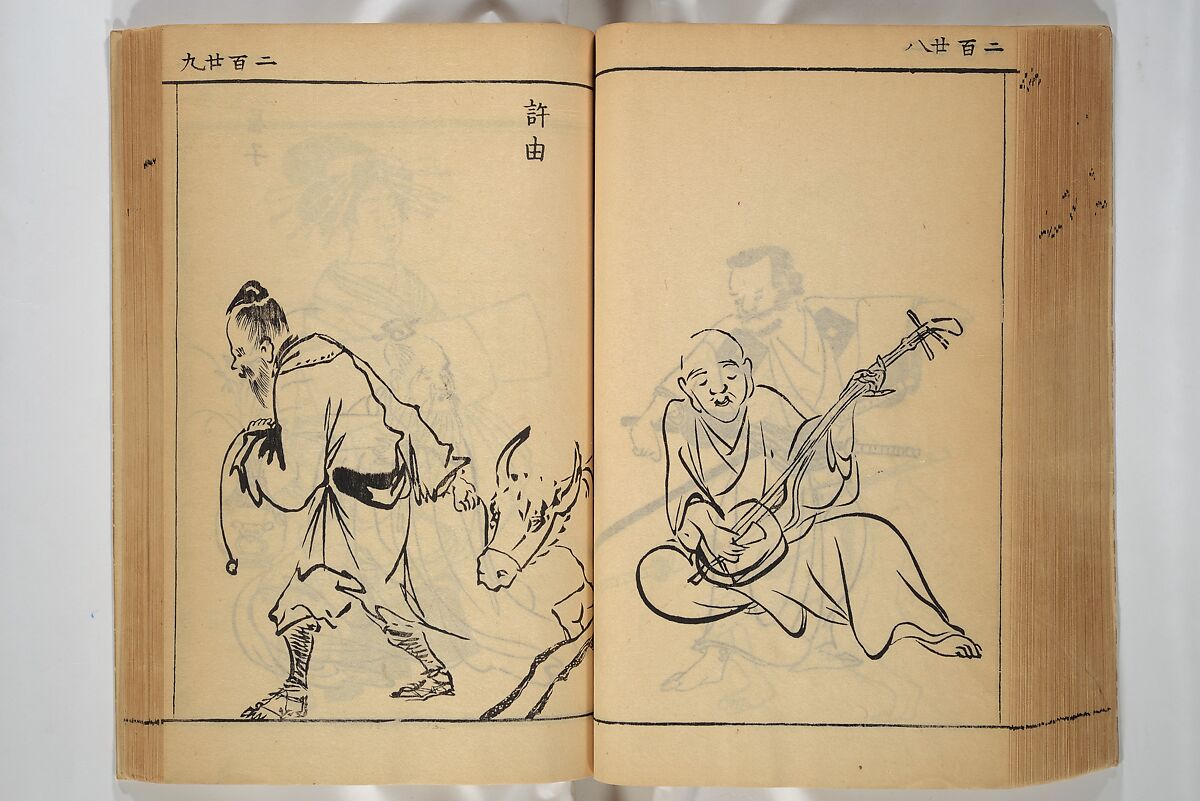 二百廿八
二百廿九
許由